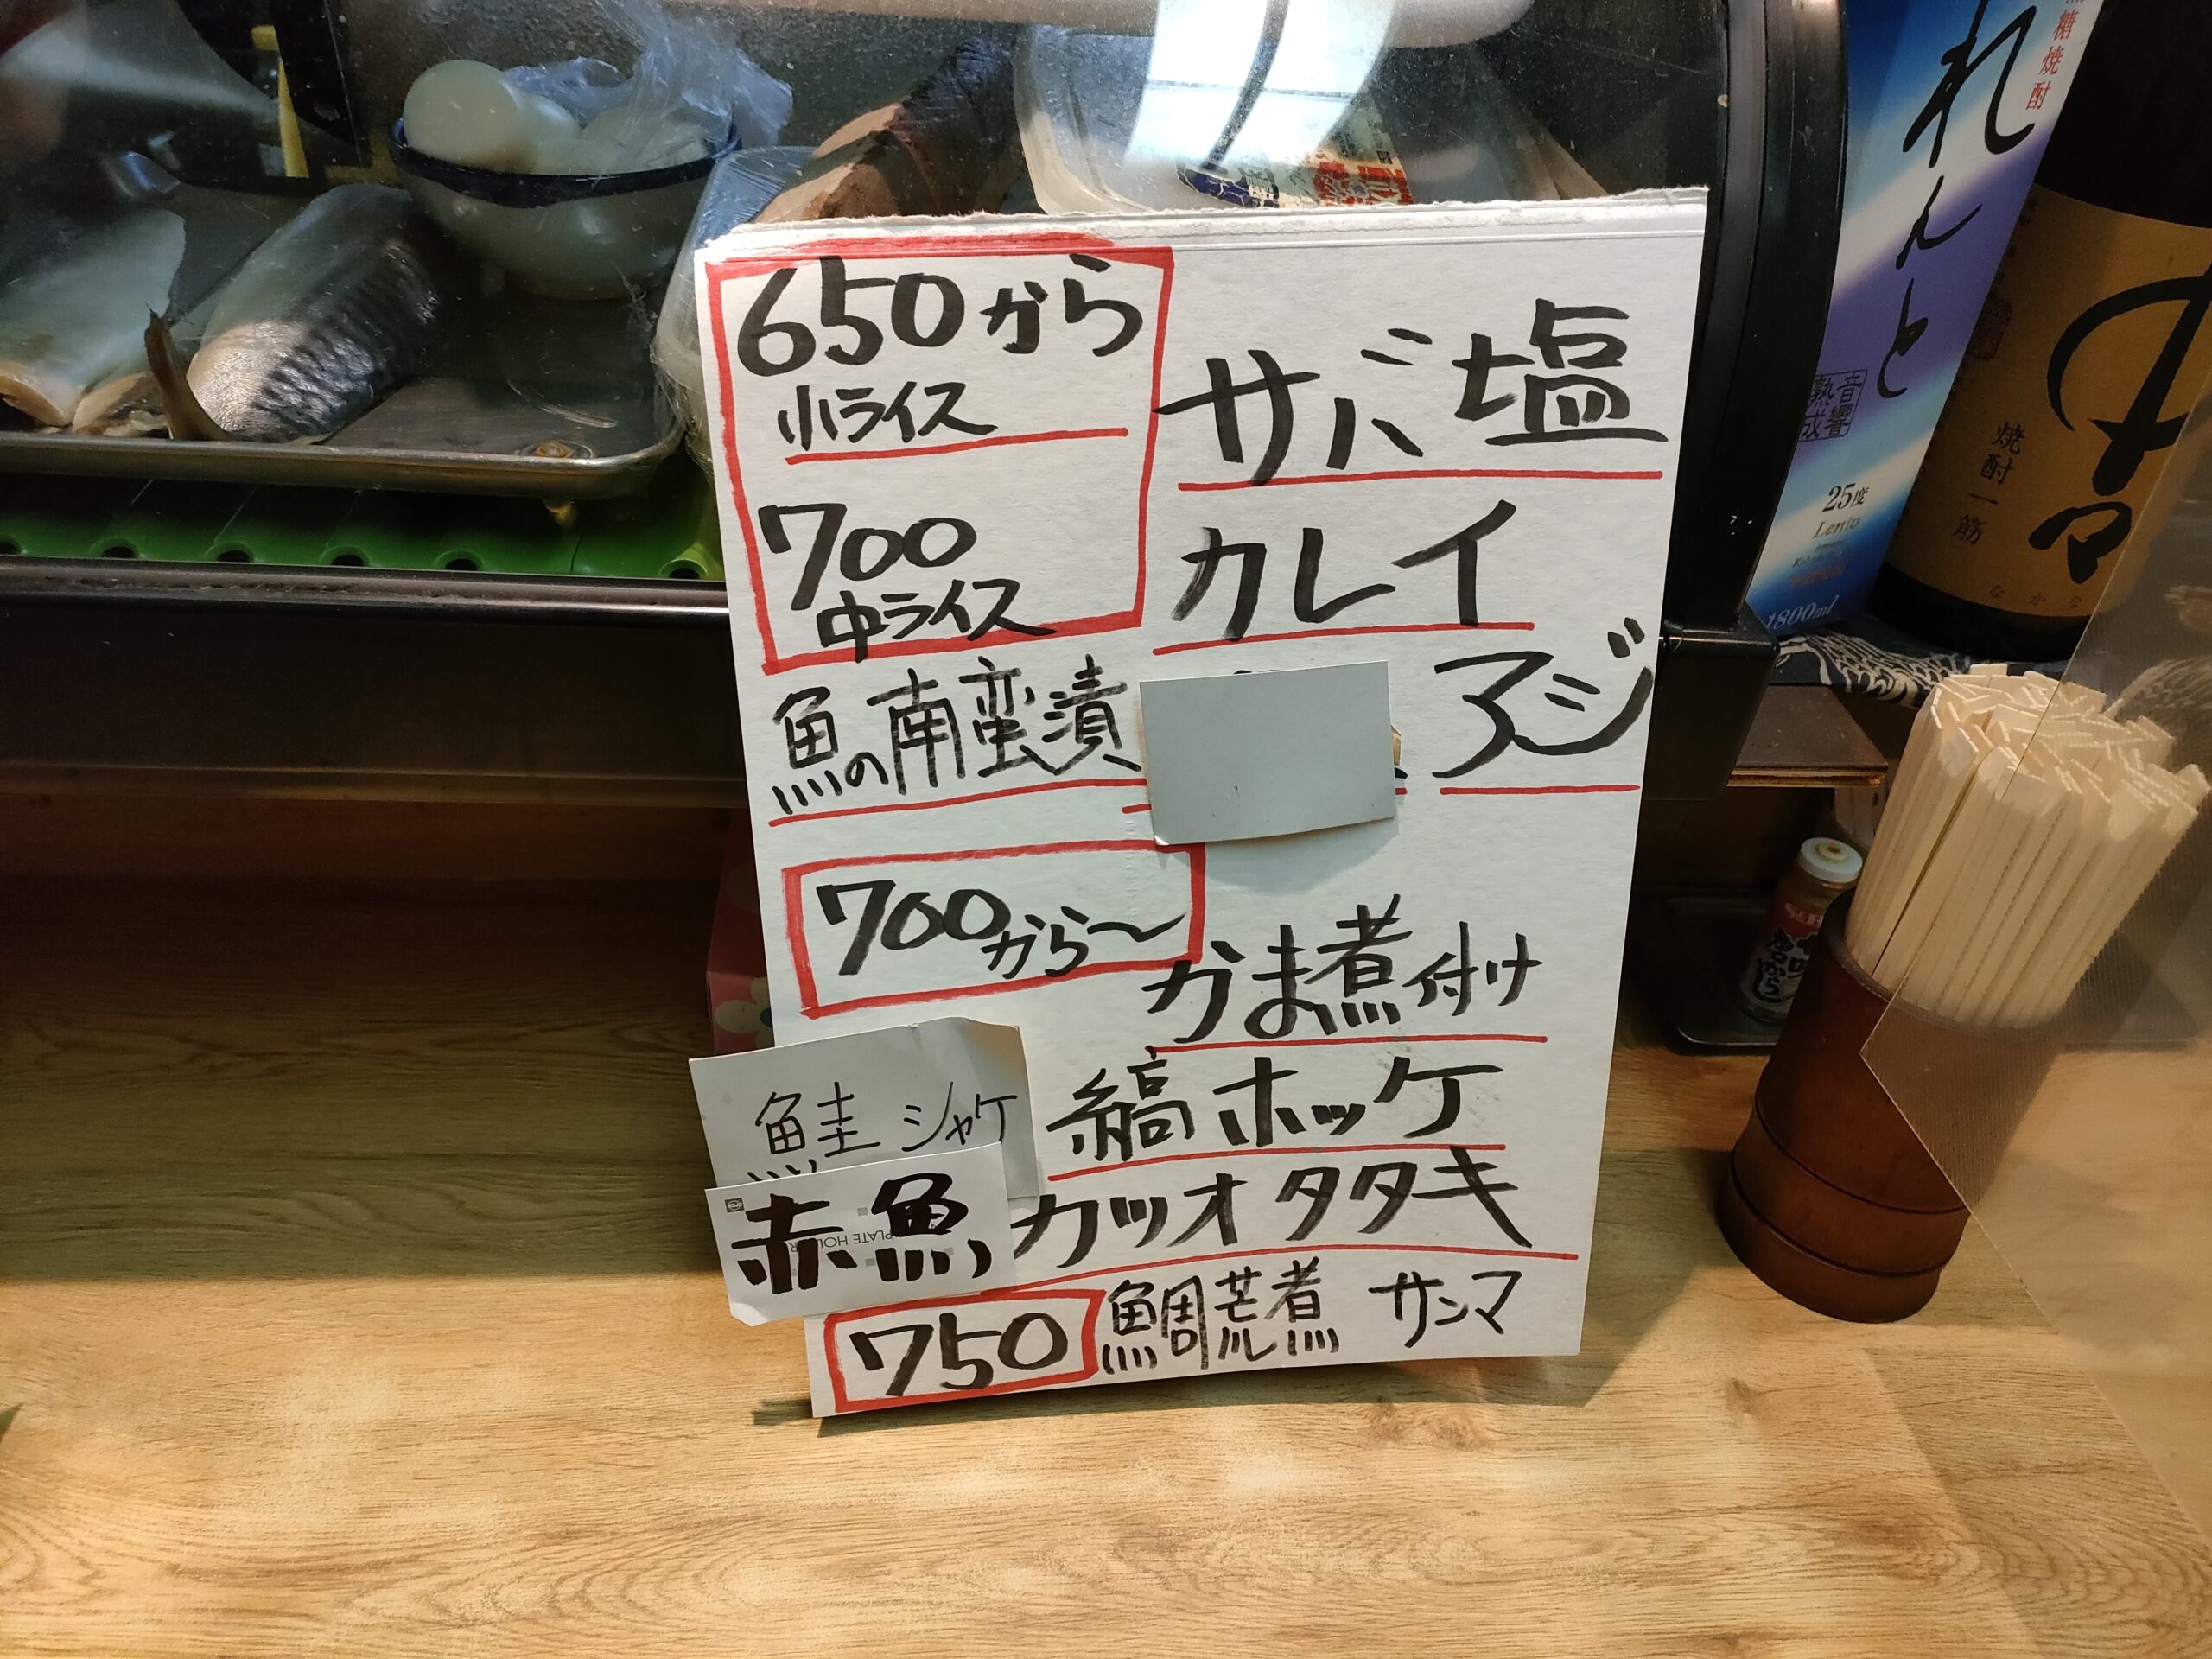 650から
小ライス
サバ塩
700
中ライス
カレイ
魚の南蛮漬
アジ
700から〜
かま煮付け
鮭 シャケ
縞ホッケ
赤魚
カツオタタキ
750
鯛荒煮 サンマ
れんと
糖焼酎
音響熟成
25度
Lento
1800ml
中々
焼酎一筋
なかな